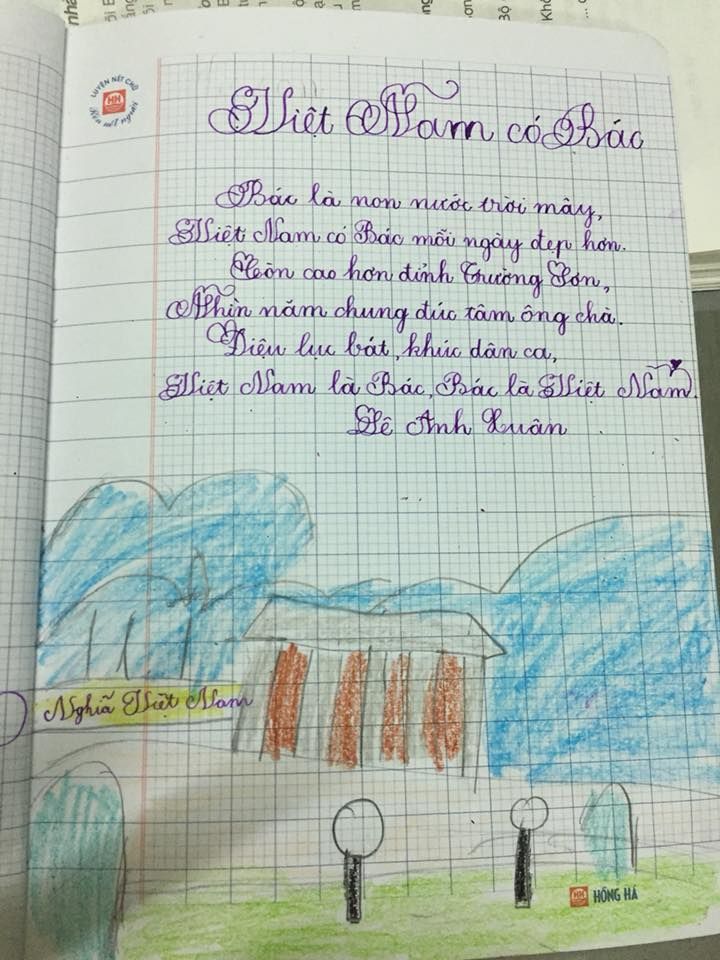 LUYỆN NÉT CHỮ
HH
Rèn nết người
Việt Nam có Bác
Bác là non nước trời mây,
Việt Nam có Bác mỗi ngày đẹp hơn.
Còn cao hơn đỉnh Trường Sơn,
Nghìn năm chung đúc tâm ông cha.
Điệu lục bát, khúc dân ca,
Việt Nam là Bác, Bác là Việt Nam.
Lê Anh Xuân
Nghĩã Việt Nam
HH HỒNG HÀ